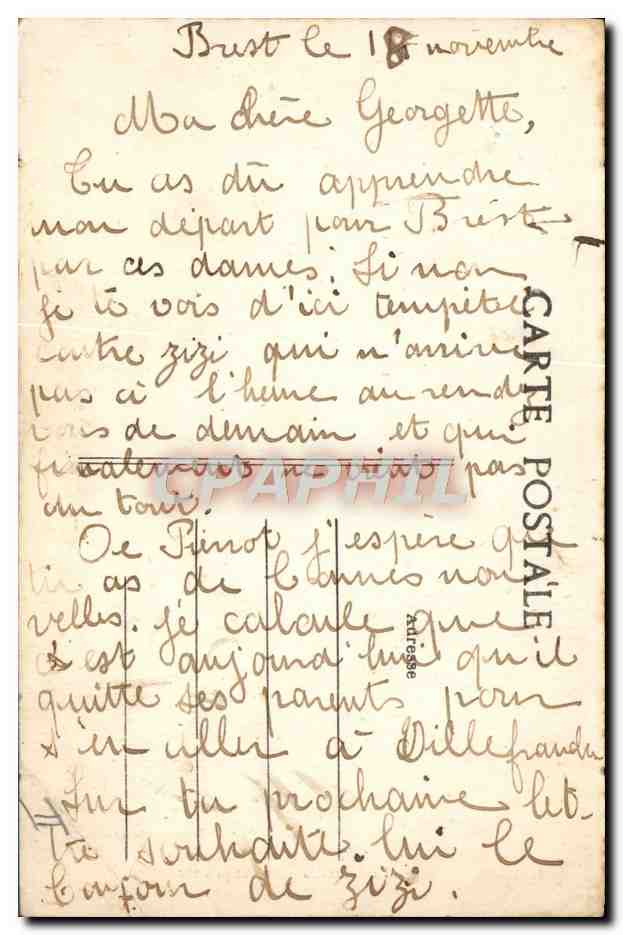 Brest le 18 novembre
Ma chère Georgette,
Tu as dû apprendre
mon départ pour Brest
par ces dames. Si non
je te vois d'ici tempêter
contre zizi qui n'arrive
pas à l'heure au rendez
vous de demain et qui
finalement ne vient pas
du tout.
De Pierrot j'espère que
tu as de bonnes nou
velles. Je calcule que
c'est aujourd'hui qu'il
quitte ses parents pour
s'en aller à Villefranche
Sur ta prochaine let-
tre souhaite lui le
bonjour de zizi.
CARTE POSTALE
Adresse
CPAPHIL